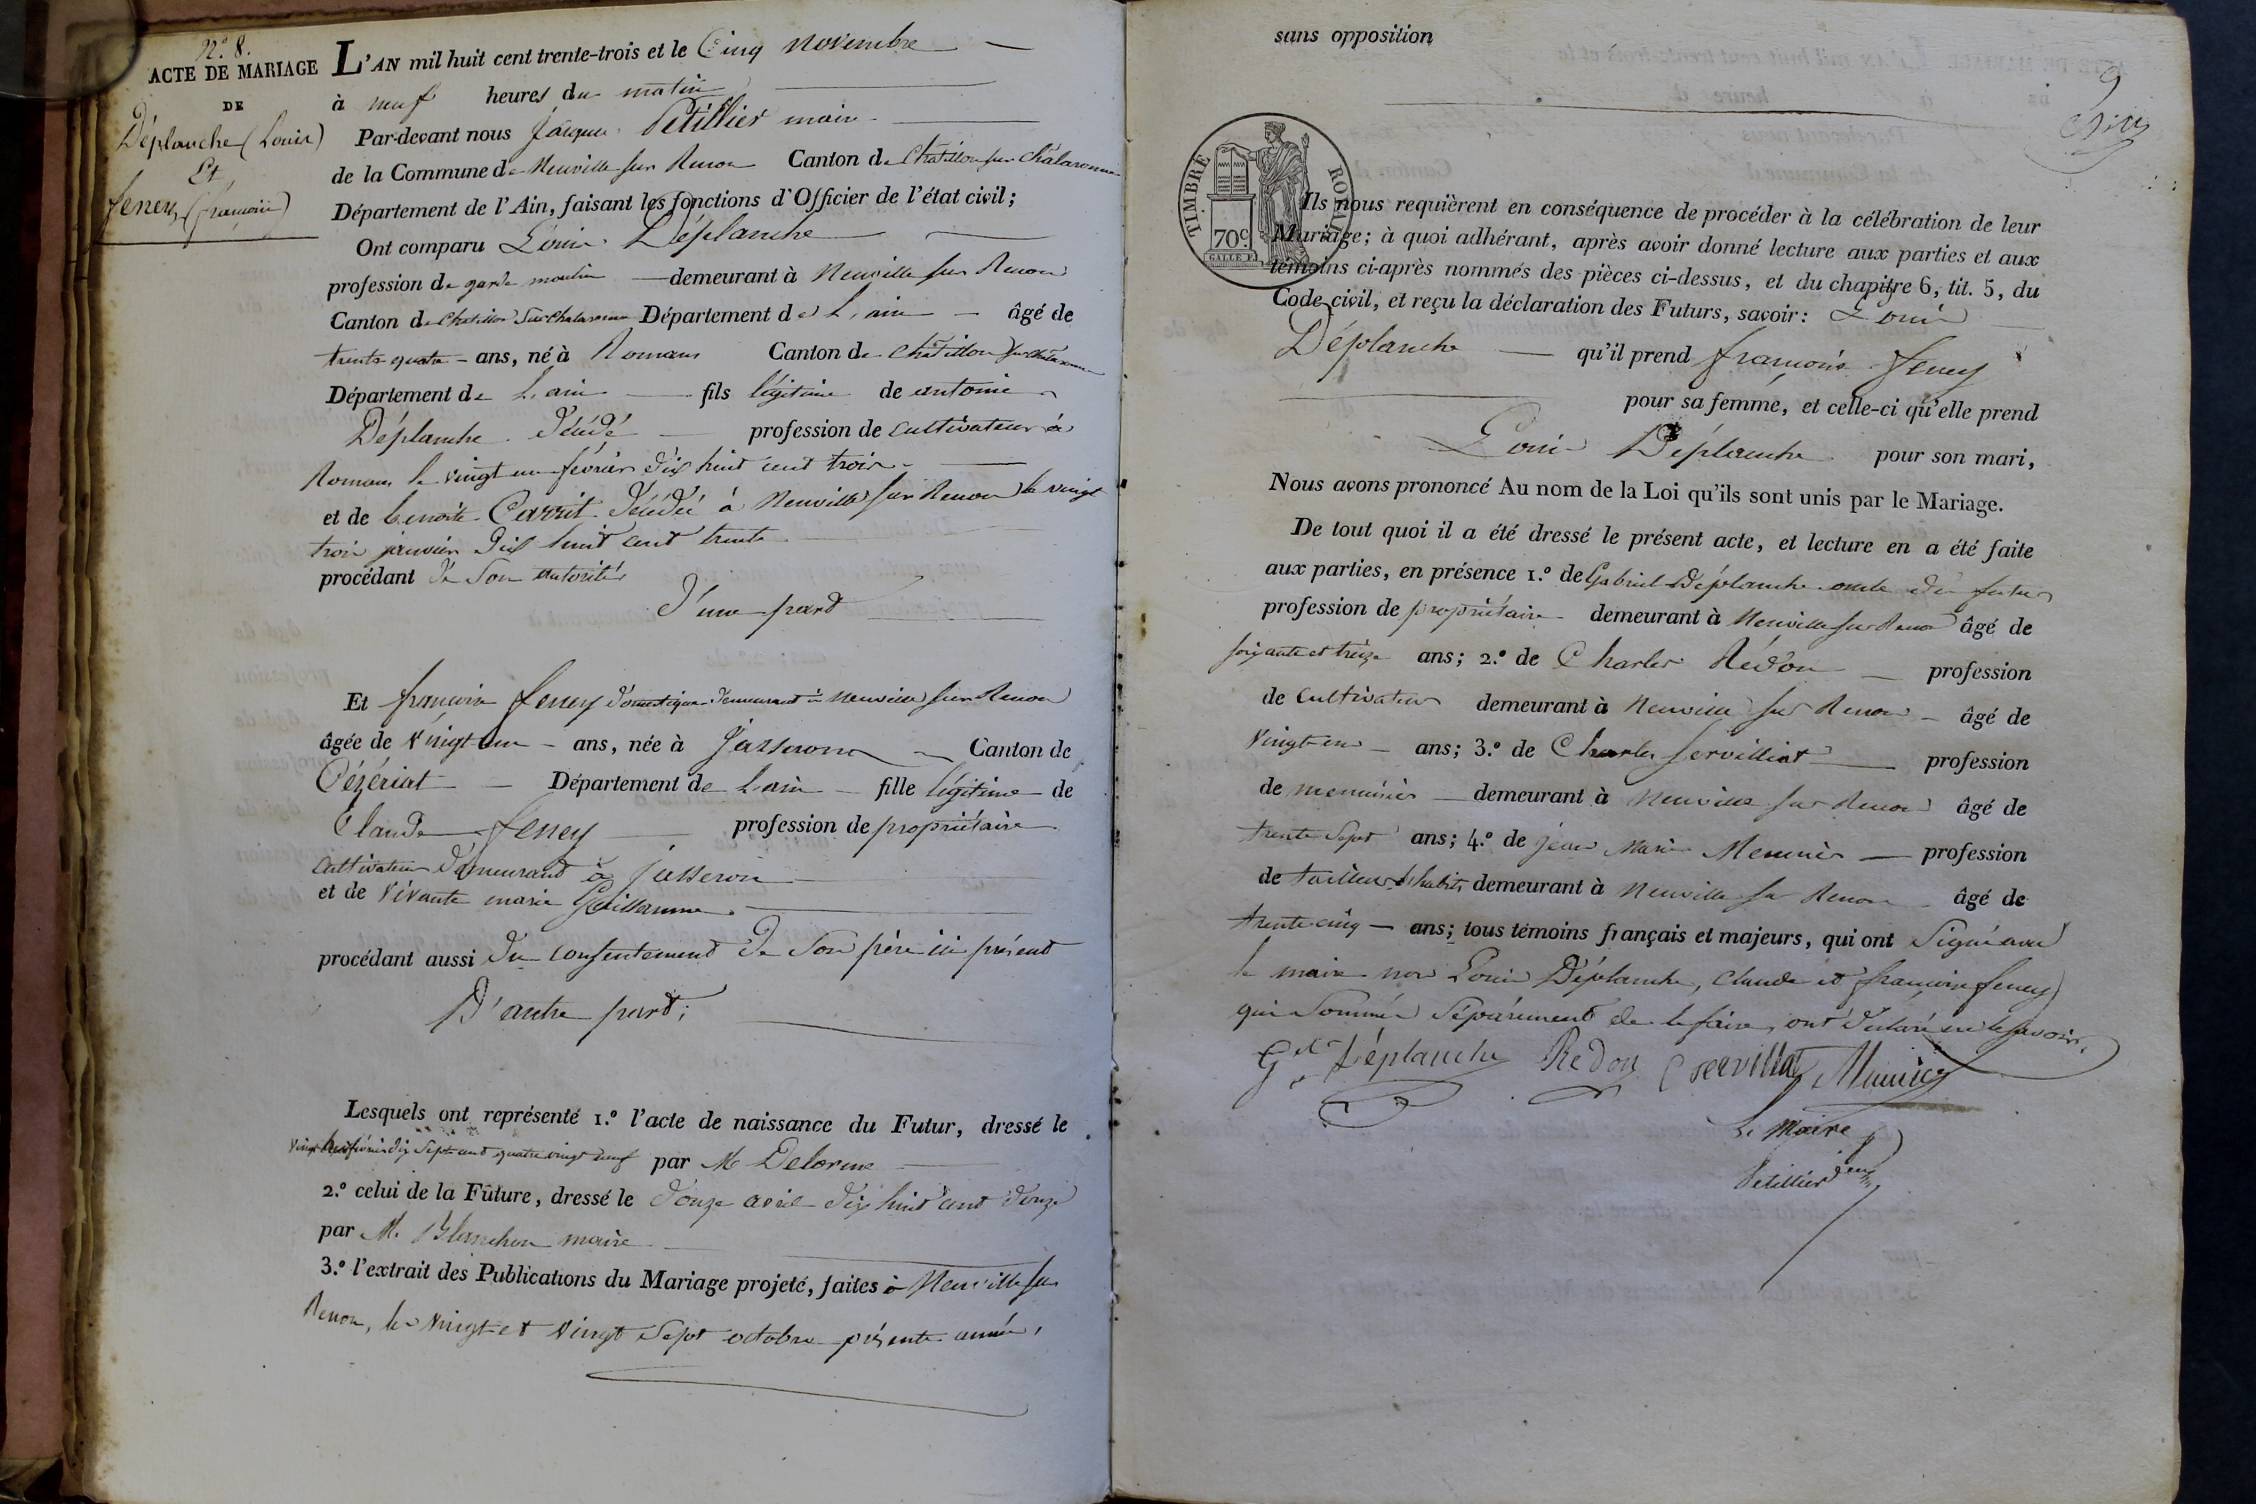 N.º 8.
ACTE DE MARIAGE
DE
Déplanche (Louis)
Et
feney (françoise)
L'AN mil huit cent trente-trois et le Cinq novembre
à neuf heures du matin
Par-devant nous jacques Petillier maire
de la Commune de Neuville sur Renon Canton de Châtillon sur Chalaronne
Département de l'Ain, faisant les fonctions d'Officier de l'état civil;
Ont comparu Louis Déplanche
profession de garde moulin demeurant à Neuville sur Renon
Canton de Chatillon Sur Chalaronne Département de L'ain âgé de
trente quatre ans, né à Romans Canton de Châtillon sur Chalaronne
Département de L'ain fils légitime de antoine
Déplanche Décédé profession de cultivateur à
Romans le vingt un février dix huit cent trois
et de benoite Carrit Décédée à Neuville sur Renon le vingt
trois janvier dix huit cent trente
procédant de Son autorité
D'une part
Et françoise feney domestique demeurant à Neuville sur Renon
âgée de vingt un ans, née à jasseron Canton de
Cézériat Département de L'ain fille légitime de
Claude feney profession de propriétaire
cultivateur demeurant à jasseron
et de vivante marie Guillaume
procédant aussi du consentement de Son père ici présent
D'autre part;
Lesquels ont représenté 1.º l'acte de naissance du Futur, dressé le
février dix Sept cent quatre vingt neuf par M Delorme
2.º celui de la Future, dressé le douze avril dix huit cent douze
par M. Blanchon maire
3.º l'extrait des Publications du Mariage projeté, faites à Neuville sur
Renon, les vingt et vingt Sept octobre présente année,
sans opposition
9
TIMBRE ROYAL
70c
GALLE F.
Ils nous requièrent en conséquence de procéder à la célébration de leur
Mariage; à quoi adhérant, après avoir donné lecture aux parties et aux
témoins ci-après nommés des pièces ci-dessus, et du chapitre 6, tit. 5, du
Code civil, et reçu la déclaration des Futurs, savoir: Louis
Déplanche qu'il prend françoise feney
pour sa femme, et celle-ci qu'elle prend
Louis Déplanche pour son mari,
Nous avons prononcé Au nom de la Loi qu'ils sont unis par le Mariage.
De tout quoi il a été dressé le présent acte, et lecture en a été faite
aux parties, en présence 1.º de Gabriel Déplanche oncle du futur
profession de propriétaire demeurant à Neuville sur Renon âgé de
soixante et treize ans; 2.º de Charles Rédon profession
de cultivateur demeurant à Neuville sur Renon âgé de
vingt-un ans; 3.º de Charles servilliat profession
de menuisier demeurant à Neuville sur Renon âgé de
trente Sept ans; 4.º de jean Marie Meunier profession
de tailleur d'habits demeurant à Neuville sur Renon âgé de
trente cinq ans; tous témoins français et majeurs, qui ont Signé avec
le maire non Louis Déplanche, Claude et françoise feney
qui Sommés Séparément de le faire, ont déclaré ne le savoir.
Gel Déplanche Redon C servillat Munier
Le Maire
Petillier